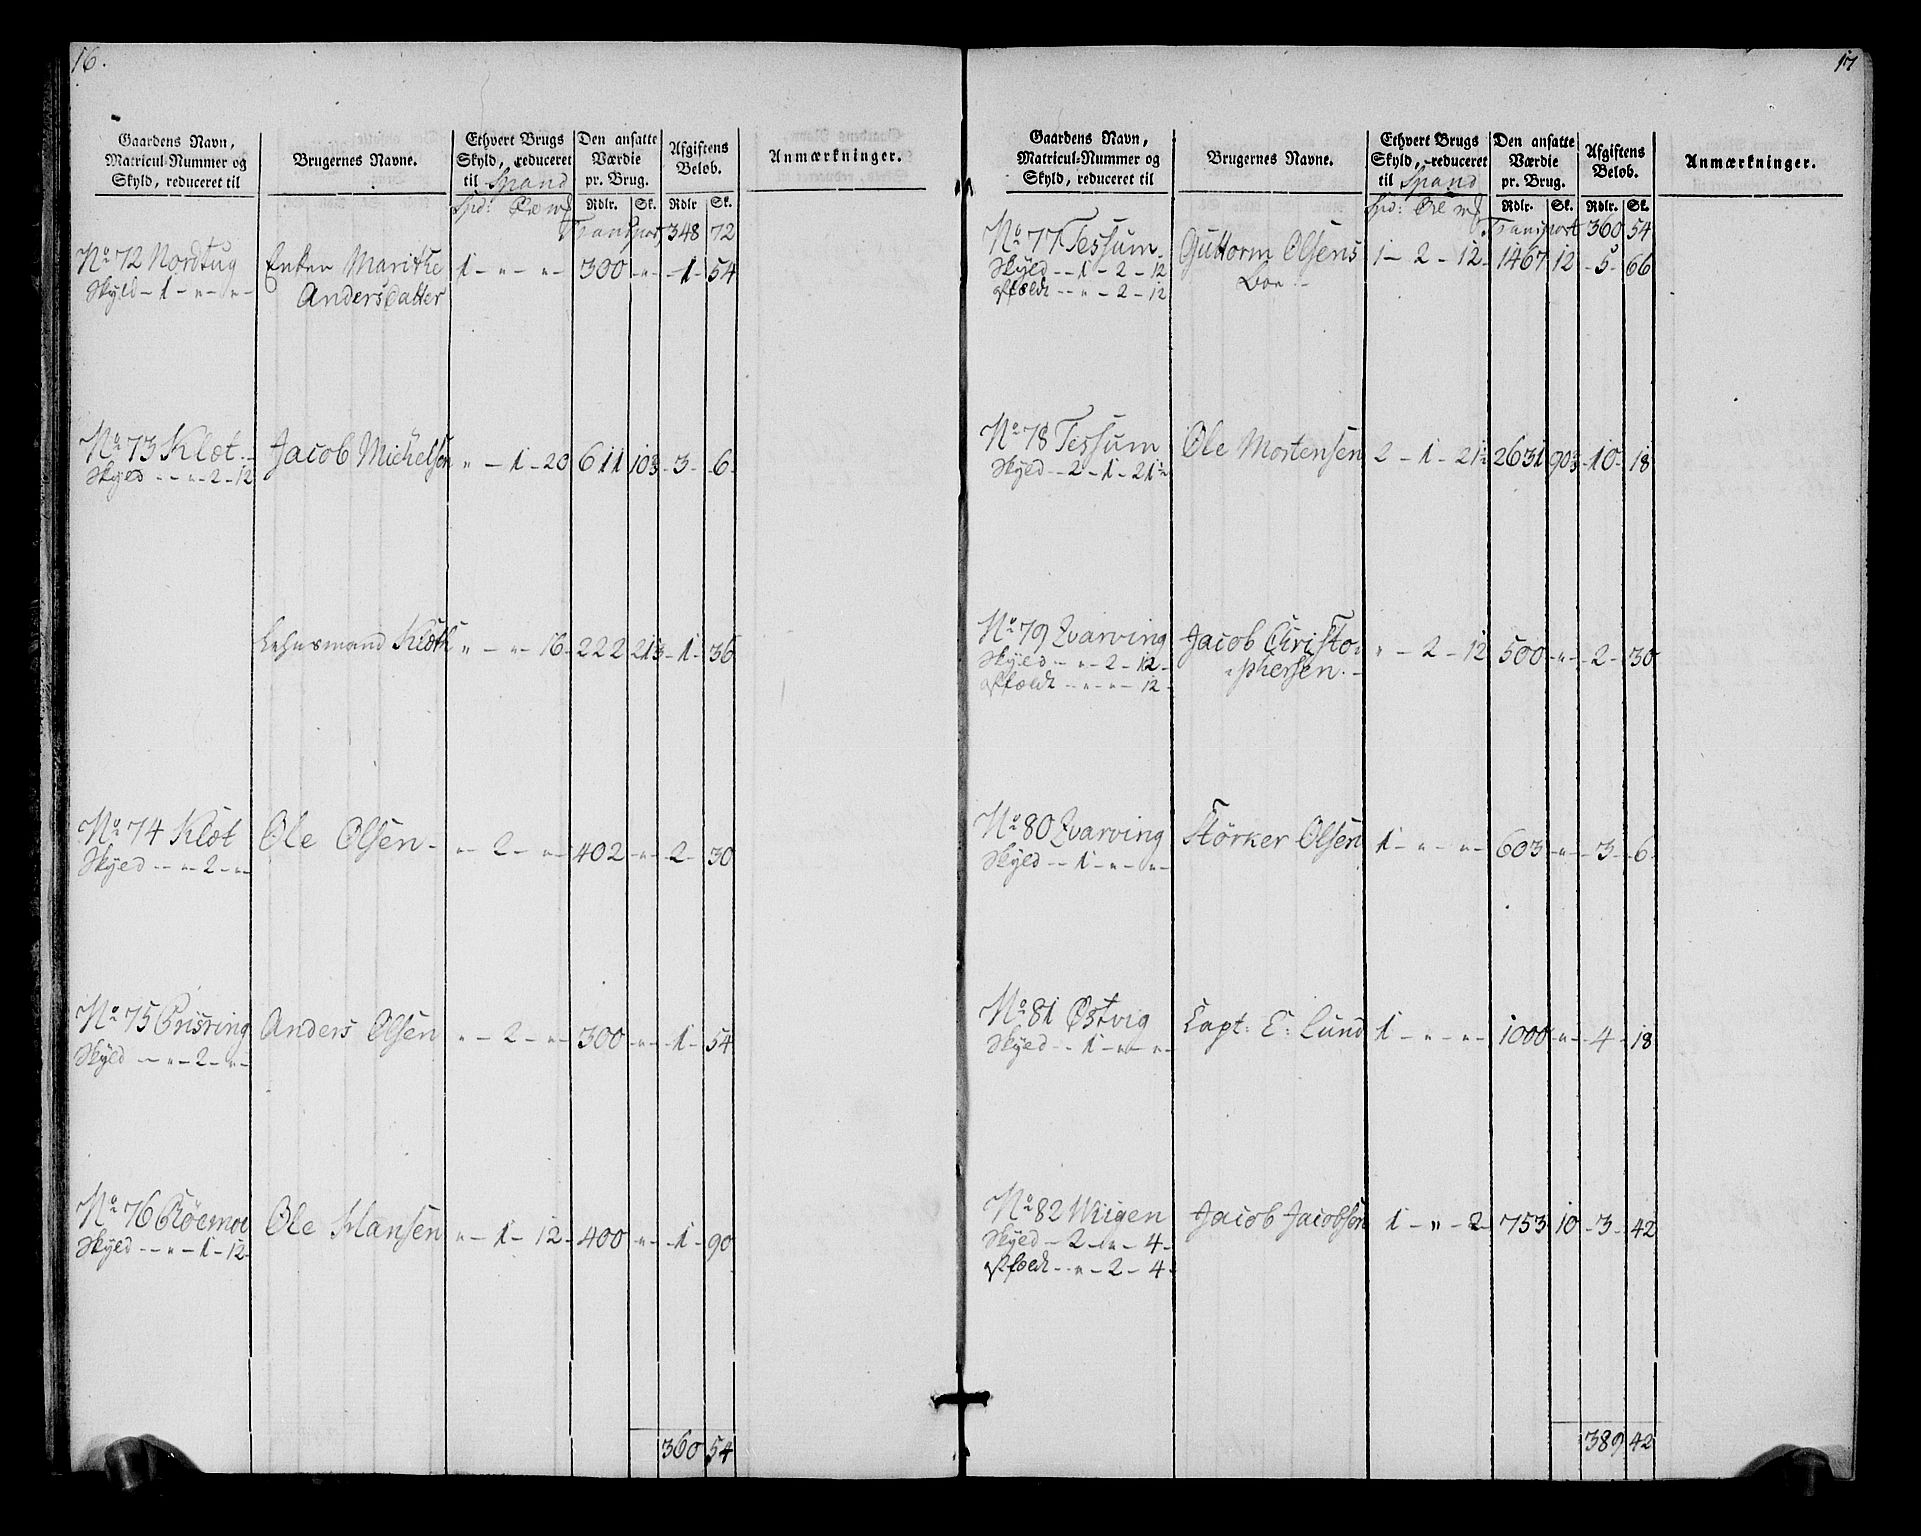 16.
Gaardens Navn,
Matricul-Nummer og
Skyld, reduceret til
Brugernes Navne.
Ethvert Brugs
Skyld, reduceret
til Spand
Spd: Øre
Den ansatte
Værdie
pr. Brug.
Rdlr. Sk.
Afgiftens
Beløb.
Rdlr Sk.
Anmærkninger.
Transport 348 72
No 72 Nordtug Enken Marithe 1 - " - " - 300 - " - 1 - 54
Skyld - 1 - " - " - Andersdatter
No 73 Kloet Jacob Michelsen " - 1 - 20 611 103 - 3 - 6 -
Skyld - - " - 2 - 12
Lehnsmand Kloeth " - " - 16 - 222 213 - 1 - 36
No 74 Kloet Ole Olsen - " - 2 - " - 402 - " - 2 - 30
Skyld - - " - 2 - " -
No 75 Prisring Anders Olsen " - 2 - " - 300 - " - 1 - 54
Skyld - - " - 2 - " -
No 76 Røemoe Ole Hansen " - 1 - 12 - 400 - " - 1 - 90
Skyld - - " - 1 - 12 -
360 54
17
Gaardens Navn,
Matricul-Nummer og
Skyld, reduceret til
Brugernes Navne.
Ethvert Brugs
Skyld, reduceret
til Spand
Spd: Øre
Den ansatte
Værdie
pr. Brug.
Rdlr. Sk.
Afgiftens
Beløb.
Rdlr. Sk.
Anmærkninger.
Transport 360 54
No 77 Tessum Guttorm Olsens 1 - 2 - 12 - 1467 12 - 5 - 66
Skyld - - 1 - 2 - 12 Boe -
affældt - - " - 2 - 12
No 78 Tessum Ole Mortensen 2 - 1 - 21½ 2631 903 - 10 - 18
Skyld - - 2 - 1 - 21½
No 79 Qvarving Jacob Christo- " - 2 - 12 500 - " - 2 - 30
Skyld - - " - 2 - 12 - phersen. -
affældt - - " - " - 12 -
No 80 Qvarving Størker Olsen 1 - " - " - 603 - " - 3 - 6 -
Skyld - - 1 - " - " -
No 81 Østvig Capt: E: Lund 1 - " - " - 1000 - " - 4 - 18
Skyld - - 1 - " - " -
No 82 Wiigen Jacob Jacobsen 1 - " - 2 - 753 10 - 3 - 42
Skyld - 2 - " - 4 -
affældt - - " - 2 - 4 -
389 42